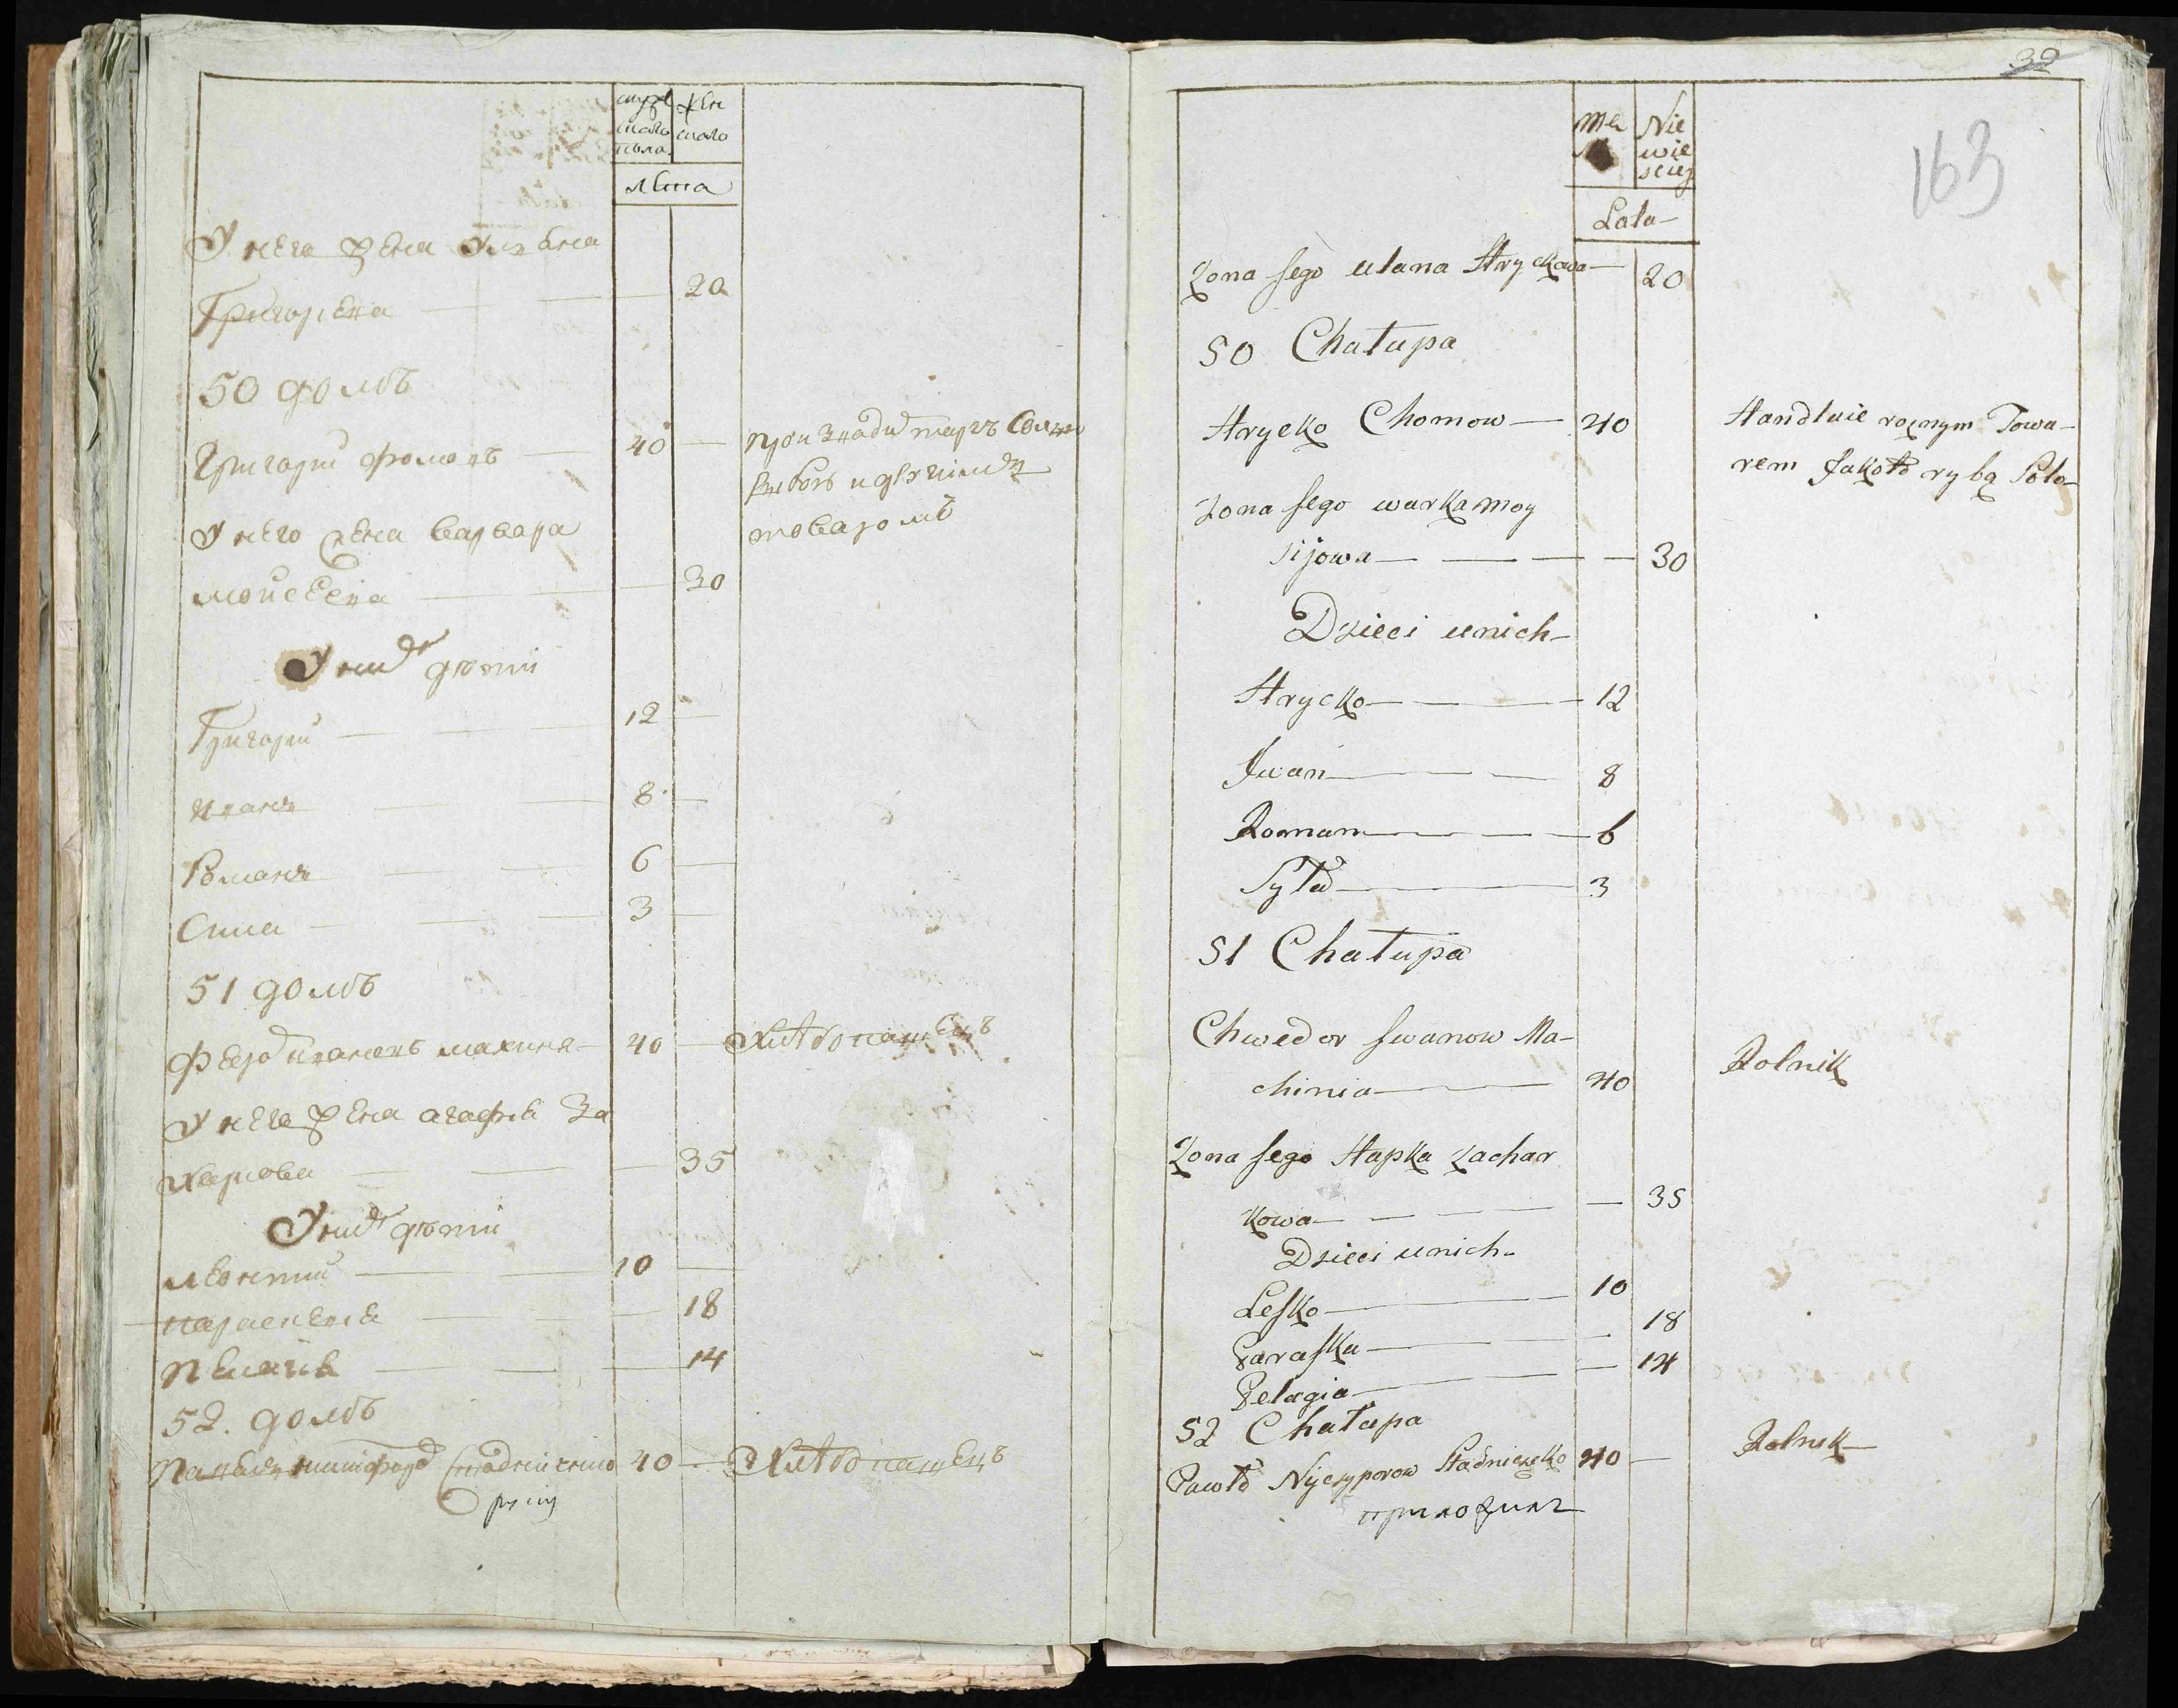 мужеска пола
женска
лета
У него жена Улияна
Григорьева — 20
50 домъ
Григорий Фомовъ — 40 — производит торгъ Солию
рыбою и
товаромъ
У него жена Варвара
Моисеева — 30
У них дѣти
Григорий — 12 —
Иванъ — 8 —
Романъ — 6 —
Сила — 3 —
51 домъ
Федоръ Ивановъ Махиня — 40 — Хлѣбопашецъ
У него жена Агафия За
харкова — 35
У них дѣти
Леонтий — 10 —
Параскевия — 18
Пелагия — 14
52. домъ
Павелъ Никифоров 40 — Хлѣбопашецъ
39
163
Mę
Nie
wie
sciey
Lata
Zona Jego Ulana Hryckowa — 20
50 Chałupa
Hrycko Chomow — 40 Handluie roznym Towa-
rem Jakoto rybą Solo
Zona Jego Warka Moy
sijowa — 30
Dzieci unich
Hrycko — 12
Jwan — 8
Roman — 6
Syła — 3
51 Chałupa
Chwedor Jwanow Ma-
chinia — 40 Rolnik
Zona Jego Hapka Zachar
kowa — 35
Dzieci unich
Lesko — 10
Paraska — 18
Pelagia — 14
52 Chałupa
Pawło Nyczyporow Stadniczeko 40 — Rolnik
приложилъ